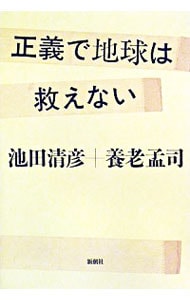 正義で地球は
救えない
池田清彦+養老孟司
新潮社